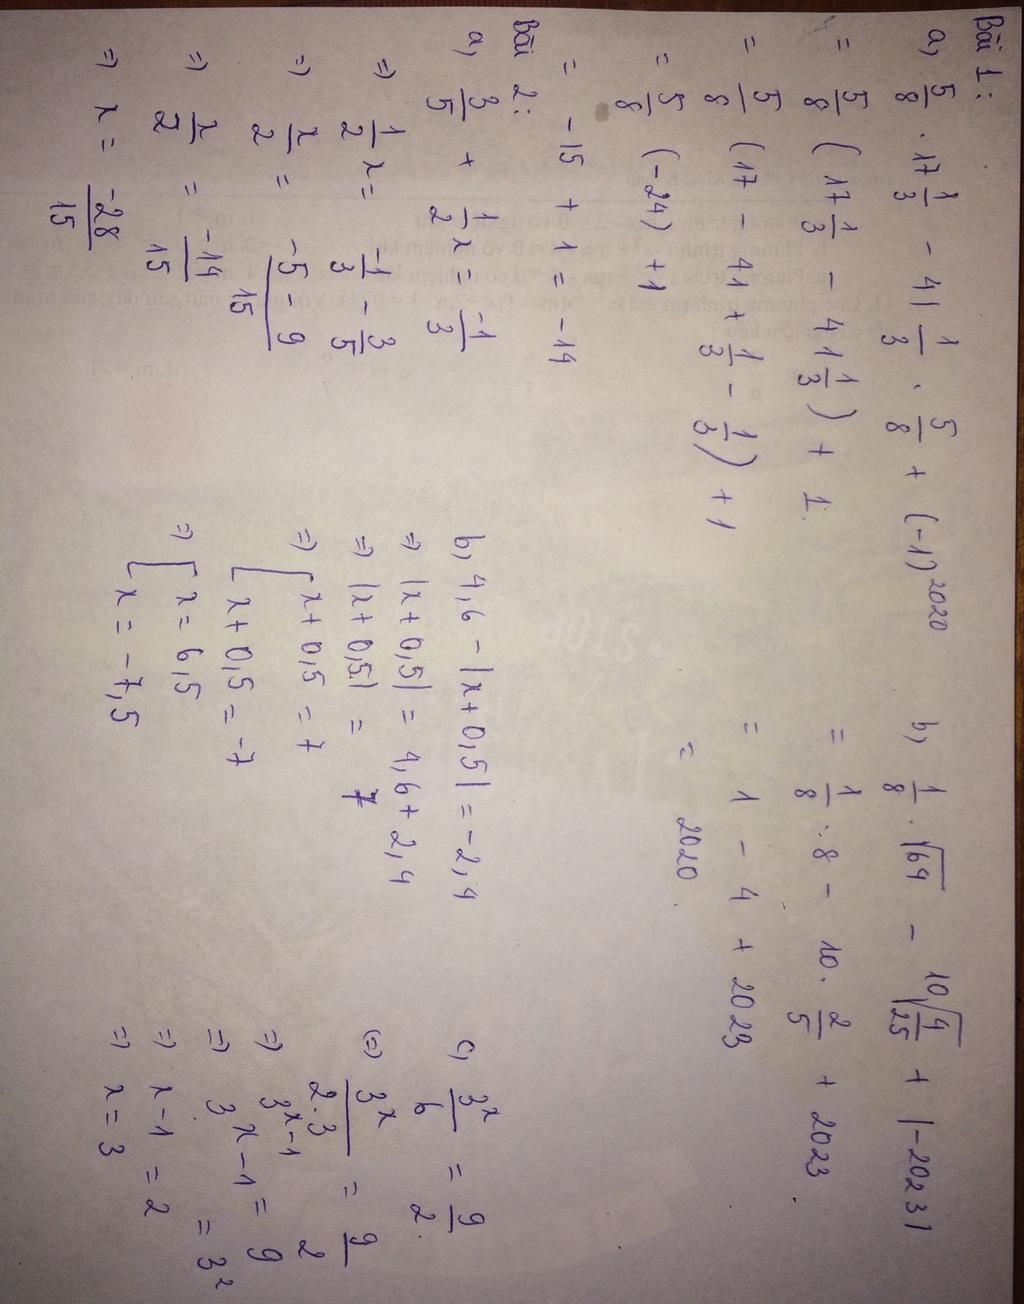 Bài 1:
a, 5/8 . 17 1/3 - 41 1/3 . 5/8 + (-1)^2020
= 5/8 (17 1/3 - 41 1/3) + 1.
= 5/8 (17 - 41 + 1/3 - 1/3) + 1
= 5/8 (-24) + 1
= -15 + 1 = -14
b, 1/8 . √64 - 10√(4/25) + |-2023|
= 1/8 . 8 - 10. 2/5 + 2023.
= 1 - 4 + 2023
= 2020.
Bài 2:
a, 3/5 + 1/2 x = -1/3
=> 1/2 x = -1/3 - 3/5
=> x/2 = (-5 - 9)/15
=> x/2 = -14/15
=> x = -28/15
b, 4,6 - |x + 0,5| = -2,4
=> |x + 0,5| = 4,6 + 2,4
=> |x + 0,5| = 7
=> [ x + 0,5 = 7
x + 0,5 = -7
=> [ x = 6,5
x = -7,5
c, 3^x/6 = 9/2.
(=) 3^x/(2.3) = 9/2
=> 3^x-1 = 9
=> 3^x-1 = 3^2
=> x - 1 = 2
=> x = 3